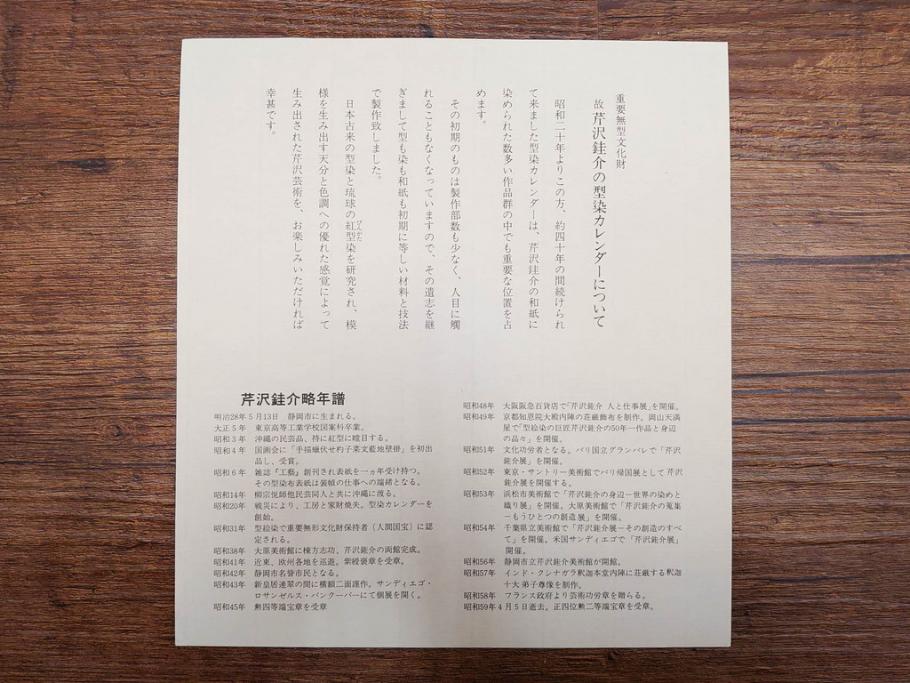 重要無型文化財
故 芹沢銈介の型染カレンダーについて
昭和二十年よりこの方、約四十年の間続けられ
て来ました型染カレンダーは、芹沢銈介の和紙に
染められた数多い作品群の中でも重要な位置を占
めます。
その初期のものは製作部数も少なく、人目に觸
れることもなくなっていますので、その遺志を継
ぎまして型も染も和紙も初期に等しい材料と技法
で製作致しました。
日本古来の型染と琉球の紅型染を研究され、模
様を生み出す天分と色調への優れた感覚によって
生み出された芹沢芸術を、お楽しみいただければ
幸甚です。
芹沢銈介略年譜
明治28年5月13日 静岡市に生まれる。
大正5年 東京高等工業学校図案科卒業。
昭和3年 沖縄の民芸品、持に紅型に瞠目する。
昭和4年 国画会に「手描蠟伏せ杓子菜文藍地壁掛」を初出
品し、受賞。
昭和6年 雑誌『工藝』創刊され表紙を一ヵ年受け持つ。
その型染布表紙は装幀の仕事への端緒となる。
昭和14年 柳宗悦師他民芸同人と共に沖縄に渡る。
昭和20年 戦災により、工房と家財焼失。型染カレンダーを
創始。
昭和31年 型絵染で重要無形文化財保持者（人間国宝）に認
定される。
昭和38年 大原美術館に棟方志功、芹沢銈介の両館完成。
昭和41年 近東、欧州各地を巡遊。紫綬褒章を受章。
昭和42年 静岡市名誉市民となる。
昭和43年 新皇居連翠の間に横額二面運作。サンディエゴ・
ロサンゼルス・バンクーバーにて個展を開く。
昭和45年 勲四等瑞宝章を受章
昭和48年 大阪阪急百貨店で「芹沢銈介 人と仕事展」を開催。
昭和49年 京都知恩院大殿内陣の荘厳飾布を制作。岡山天満
屋で「型絵染の巨匠芹沢銈介の50年―作品と身辺
の品々」を開催。
昭和51年 文化功労者となる。パリ国立グランパレで「芹沢
銈介展」を開催。
昭和52年 東京・サントリー美術館でパリ帰国展として芹沢
銈介展を開催する。
昭和53年 浜松市美術館で「芹沢銈介の身辺―世界の染めと
織り展」を開催。大原美術館で「芹沢銈介の蒐集
―もうひとつの創造展」を開催。
昭和54年 千葉県立美術館で「芹沢銈介展―その創造のすべ
て」を開催。米国サンディエゴで「芹沢銈介展」
開催。
昭和56年 静岡市立芹沢銈介美術館が開館。
昭和57年 インド・クシナガラ釈迦本堂内陣に荘厳する釈迦
十大弟子尊像を制作。
昭和58年 フランス政府より芸術功労章を贈らる。
昭和59年4月5日逝去。正四位勲二等瑞宝章を受章。